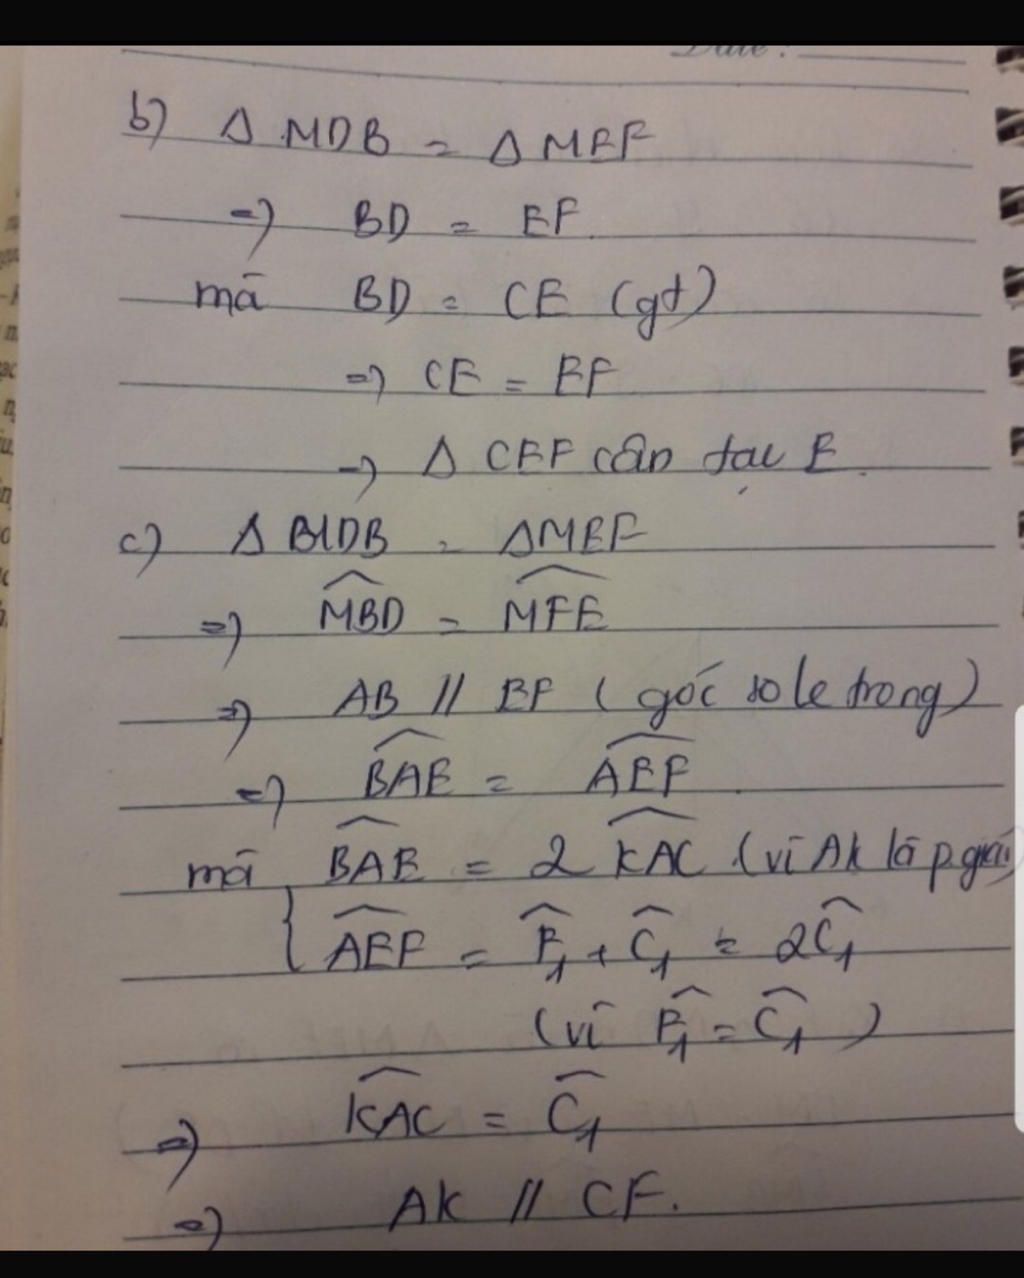 Date :
b) Δ MDB = Δ MEF
=> BD = EF.
mà BD = CE (gt)
=> CE = EF
=> Δ CEF cân tại E.
c) Δ MDB = ΔMEF
=> \widehat{MBD} = \widehat{MFE}
=> AB // EF ( góc so le trong )
=> \widehat{BAE} = \widehat{AEF}.
mà \widehat{BAE} = 2 \widehat{KAC} (vì AK là p.giác)
{ \widehat{AEF} = \widehat{F_1} + \widehat{C_1} = 2\widehat{C_1}
(vì \widehat{F_1} = \widehat{C_1} )
=> \widehat{KAC} = \widehat{C_1}
=> AK // CF.